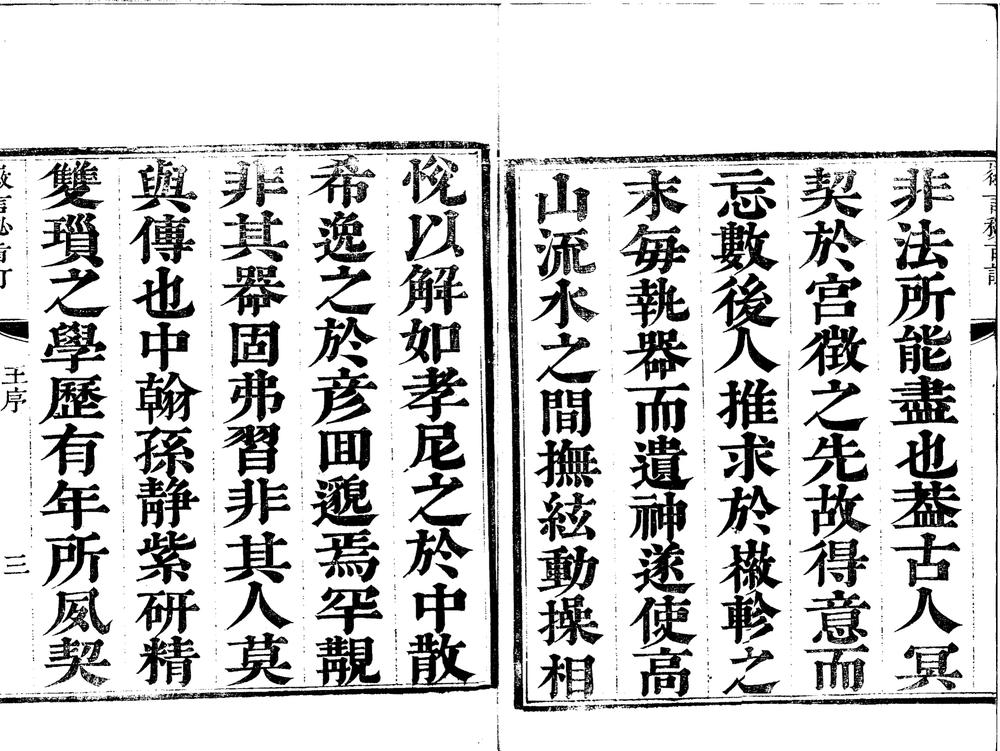 非法所能盡也葢古人冥
契於宮徴之先故得意而
忘數後人推求於徽軫之
末每執器而遺神遂使高
山流水之間撫絃動操相
悅以解如孝尼之於中散
希逸之於彥囬邈焉罕覯
非其器固弗習非其人莫
與傳也中翰孫静紫研精
雙瑣之學歷有年所夙契
王序 三